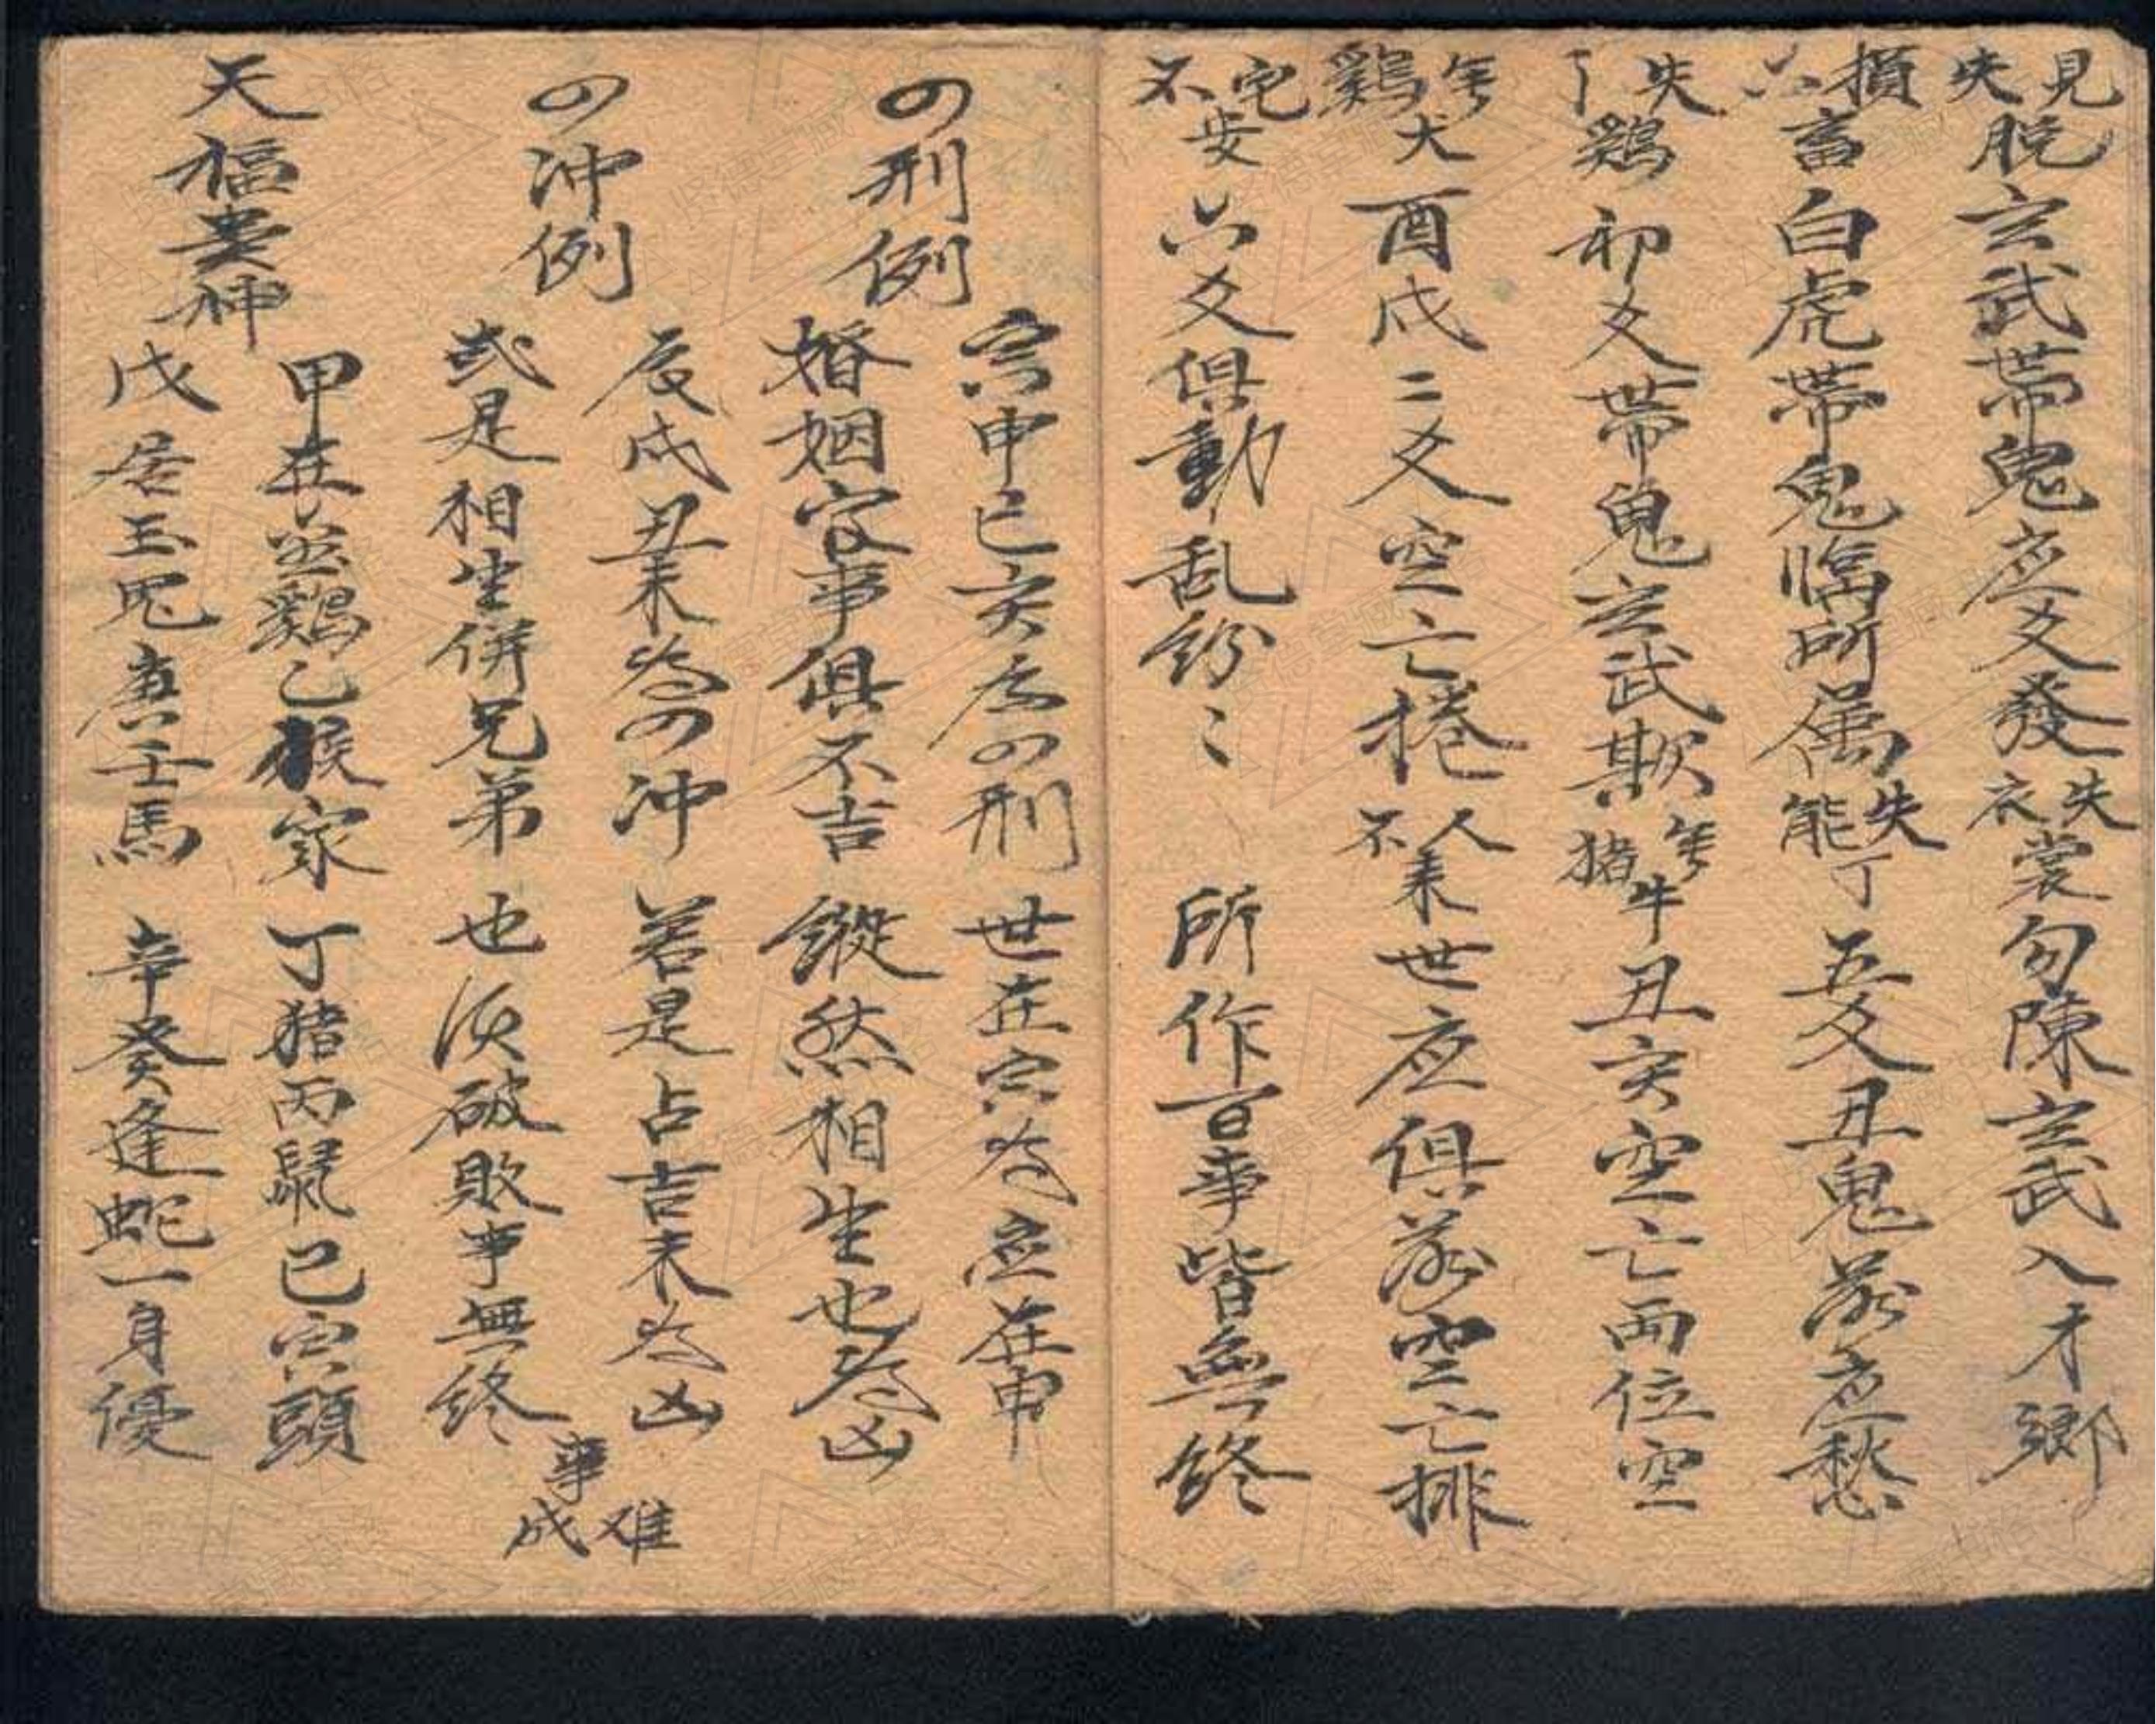 見失脱玄武帶鬼应爻發失衣裳勾陳玄武入才鄉
損六畜白虎帶鬼臨所属失能丁五爻丑鬼落应愁
失了鷄卯爻帶鬼玄武欺年猪牛丑亥空亡両位空
年鷄犬酉戌二爻空亡捲人不来世应俱落空亡排
宅不安六爻俱動乱紛〻所作百事皆無終
の刑例
寅申巳亥为の刑世在寅為应在申
婚姻家事俱不吉縱然相生也為凶
の冲例
辰戌丑未為の冲若是占吉未為凶
或是相生併兄弟也须破敗事無終
难事成
天福贵神
甲在並鷄乙猴家丁猪丙鼠己寅頭
戊居玉兎庚壬馬辛癸逢蛇一身優